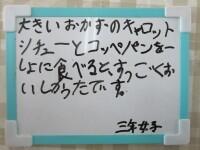 大きいおかずのキャロット
シチューとコッペパンを一
しょに食べると、すっごくお
いしかったです。
三年女子